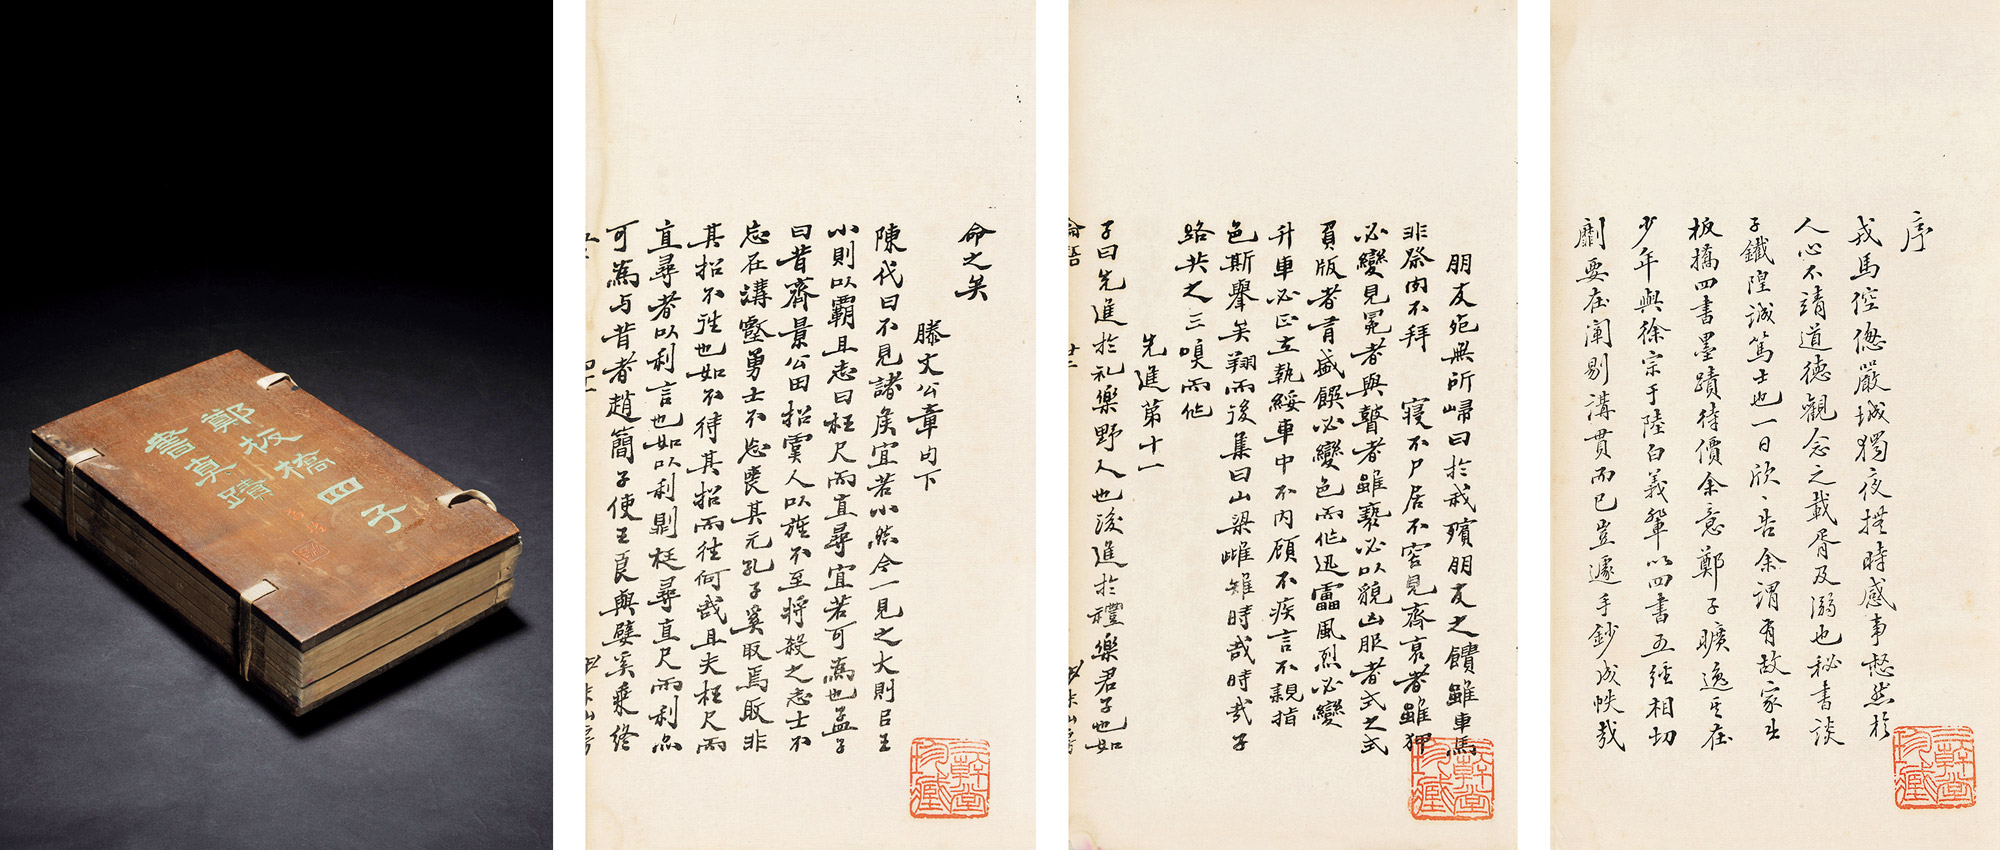 鄭板橋四子
書真蹟
命之矣
滕文公章句下
陳代曰不見諸侯宜若小然今一見之大則以王
小則以霸且志曰枉尺而直尋宜若可為也孟子
曰昔齊景公田招虞人以旌不至將殺之志士不
忘在溝壑勇士不忘喪其元孔子奚取焉取非
其招不往也如不待其招而往何哉且夫枉尺而
直尋者以利言也如以利則枉尋直尺而利亦
可為与昔者趙簡子使王良與嬖奚乘終
朋友死無所歸曰於我殯朋友之饋雖車馬
非祭肉不拜 寢不尸居不容見齊衰者雖狎
必變見冕者與瞽者雖褻必以貌凶服者式之式
負版者有盛饌必變色而作迅雷風烈必變
升車必正立執綏車中不內顧不疾言不親指
色斯舉矣翔而後集曰山梁雌雉時哉時哉子
路共之三嗅而作
先進第十一
子曰先進於礼樂野人也後進於禮樂君子也如
論語 廿二
序
戎馬倥傯嚴城獨夜撫時感事愁然於
人心不靖道德觀念之載胥及溺也秘書談
子鐵隍誠篤士也一日欣〻告余謂有故家出
板橋四書墨蹟待價余意鄭子曠逸其在
少年與徐宗于陸白義輩以四書五經相切
劘要在闡剔溝貫而已豈遽手鈔成帙哉